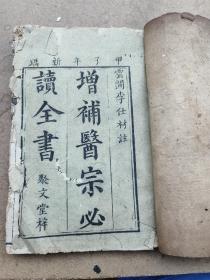 甲子年新鐫
雲間李仕材註
增補醫宗必
讀全書
聚文堂梓